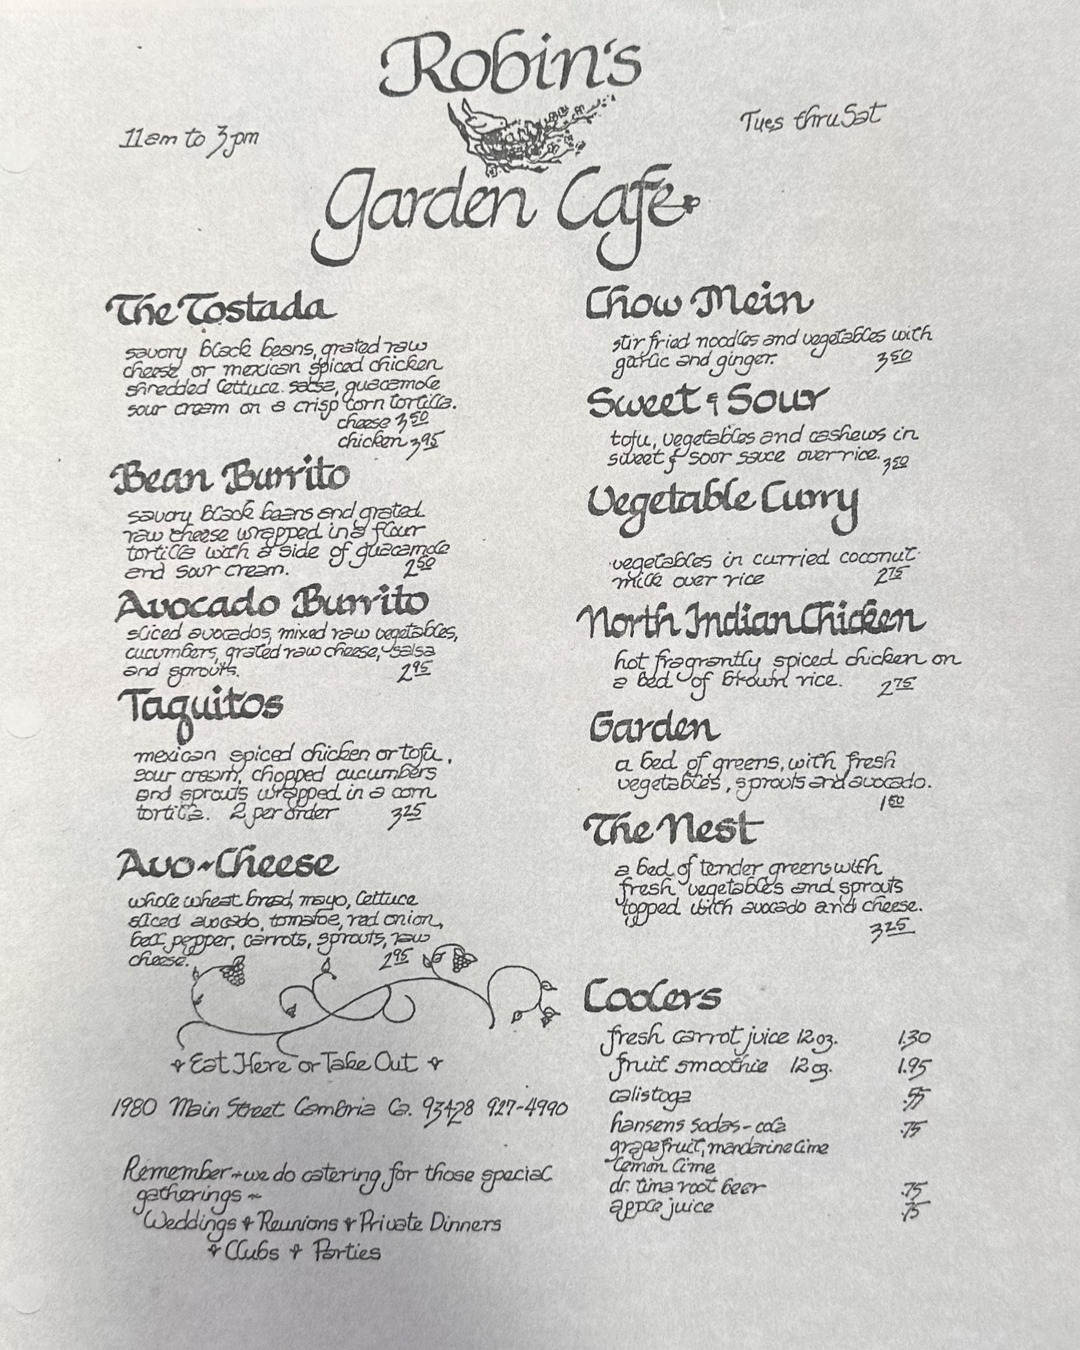 Robin's
11am to 3pm
Tues thru Sat
Garden Cafe
The Tostada
savory black beans, grated raw
cheese or mexican spiced chicken
shredded lettuce. salsa, guacamole
sour cream on a crisp corn tortilla.
cheese 3.50
chicken 3.95
Bean Burrito
savory black beans and grated
raw cheese wrapped in a flour
tortilla with a side of guacamole
and sour cream. 2.50
Avocado Burrito
sliced avocados, mixed raw vegetables,
cucumbers, grated raw cheese, salsa
and sprouts. 2.95
Taquitos
mexican spiced chicken or tofu,
sour cream, chopped cucumbers
and sprouts wrapped in a corn
tortilla. 2 per order 3.25
Avo~Cheese
whole wheat bread, mayo, lettuce
sliced avocado, tomatoe, red onion,
bell pepper, carrots, sprouts, raw
cheese. 2.95
Eat Here or Take Out
1980 Main Street Cambria Ca. 93428 927-4990
Remember~we do catering for those special
gatherings ~
Weddings Reunions Private Dinners
Clubs Parties
Chow Mein
stir fried noodles and vegetables with
garlic and ginger. 3.50
Sweet & Sour
tofu, vegetables and cashews in
sweet & soor sauce over rice. 3.50
Vegetable Curry
vegetables in curried coconut
milk over rice 2.75
North Indian Chicken
hot fragrantly spiced chicken on
a bed of brown rice. 2.75
Garden
a bed of greens, with fresh
vegetables, sprouts and avocado.
The Nest
a bed of tender greens with
fresh vegetables and sprouts
topped with avocado and cheese.
3.25
Coolers
fresh carrot juice 12 oz. 1.30
fruit smoothie 12 oz. 1.95
calistoga .55
hansens sodas - cola .75
grapefruit, mandarine lime
lemon lime
dr. tima root beer .75
apple juice .75